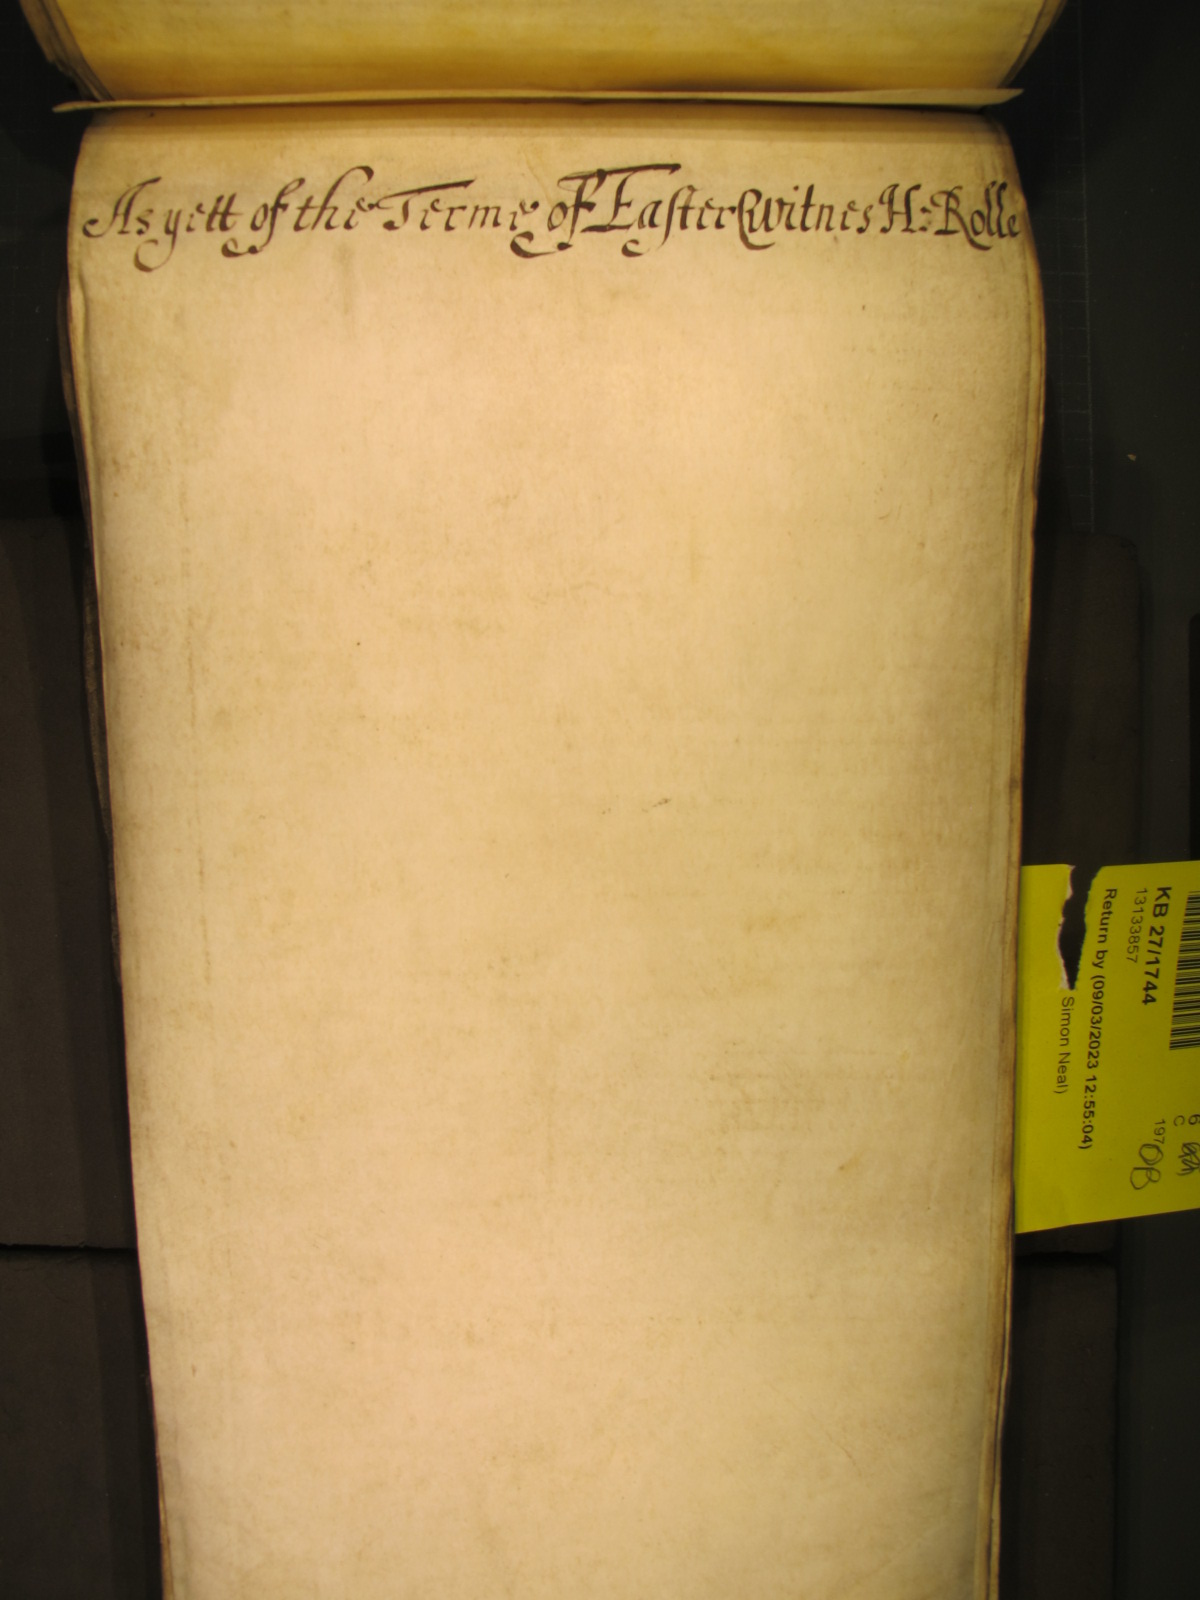 As yett of the Terme of Easter Witnes H: Rolle
KB 27/1744
13133857
Return by (09/03/2023 12:55:04)
Simon Neal)
6
C
197